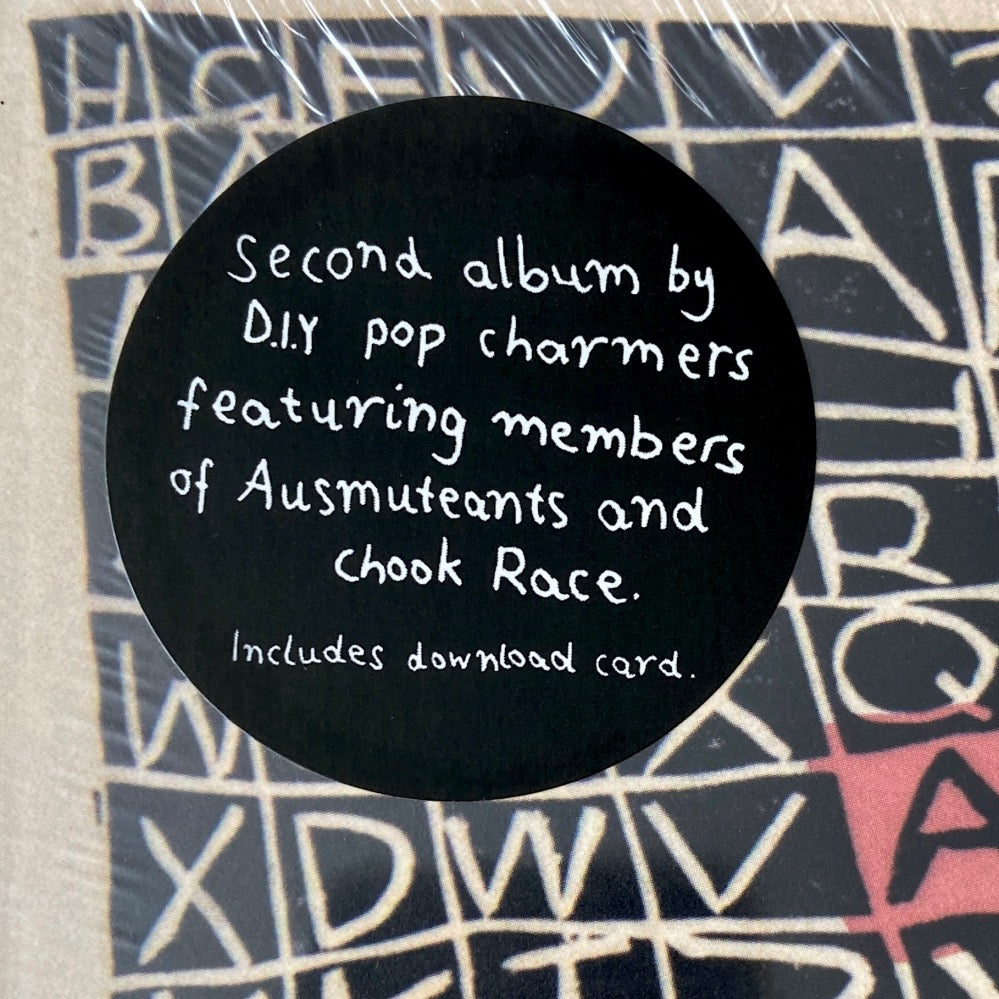 H G F U V
B A
Second album by
D.I.Y pop charmers
featuring members
of Ausmuteants and
Chook Race.
Includes download card.
R
W K Q
X D W V A